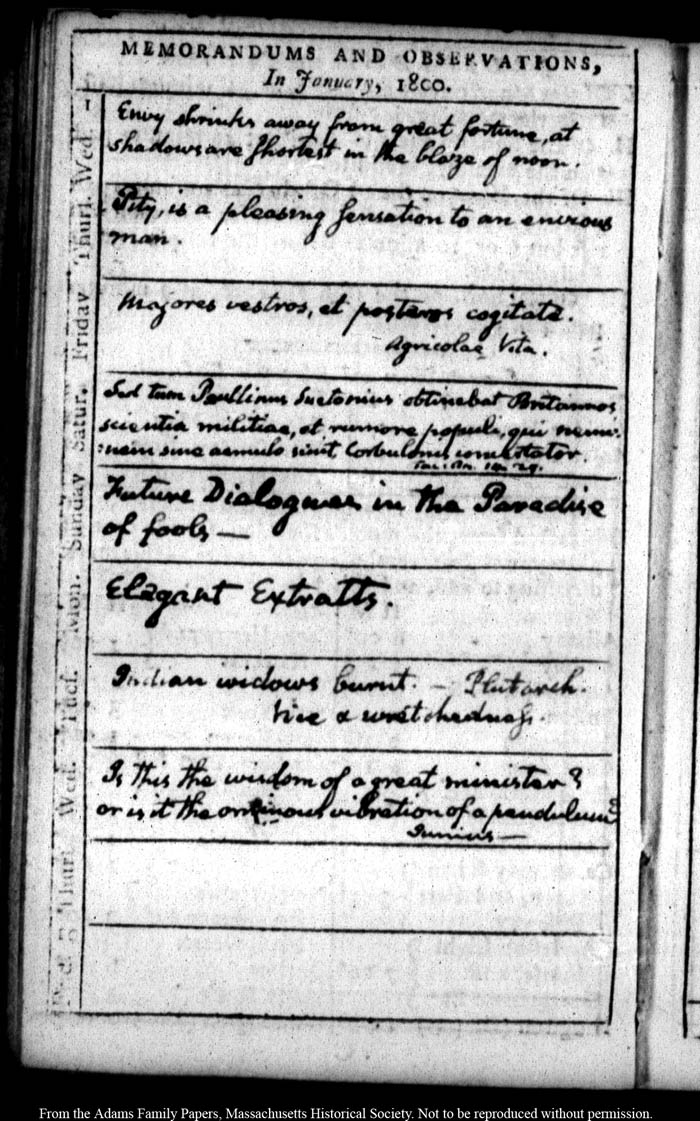 MEMORANDUMS AND OBSERVATIONS,
In January, 1800.
1
Wed.
Thurs.
Friday
Satur.
Sunday
Mon.
Tues.
Wed.
Thurs.
Envy shrinks away from great fortune, at
shadows are shortest in the blaze of noon.
Pity, is a pleasing sensation to an envious
man.
Majores vestros, et posteros cogitate.
Agricolae Vita.
Sed tum Paullinus Suetonius obtinebat Britannos,
scientia militiae, et rumore populi, qui nemi-
:nem sine aemulo sinit Corbulonis concertator.
Future Dialogues in the Paradise
of fools —
Elegant Extratts.
Indian widows burnt. — Plutarch.
Vice & wretchedness.
Is this the wisdom of a great minister?
or is it the ominous vibration of a pendulum?
Junius —
From the Adams Family Papers, Massachusetts Historical Society. Not to be reproduced without permission.